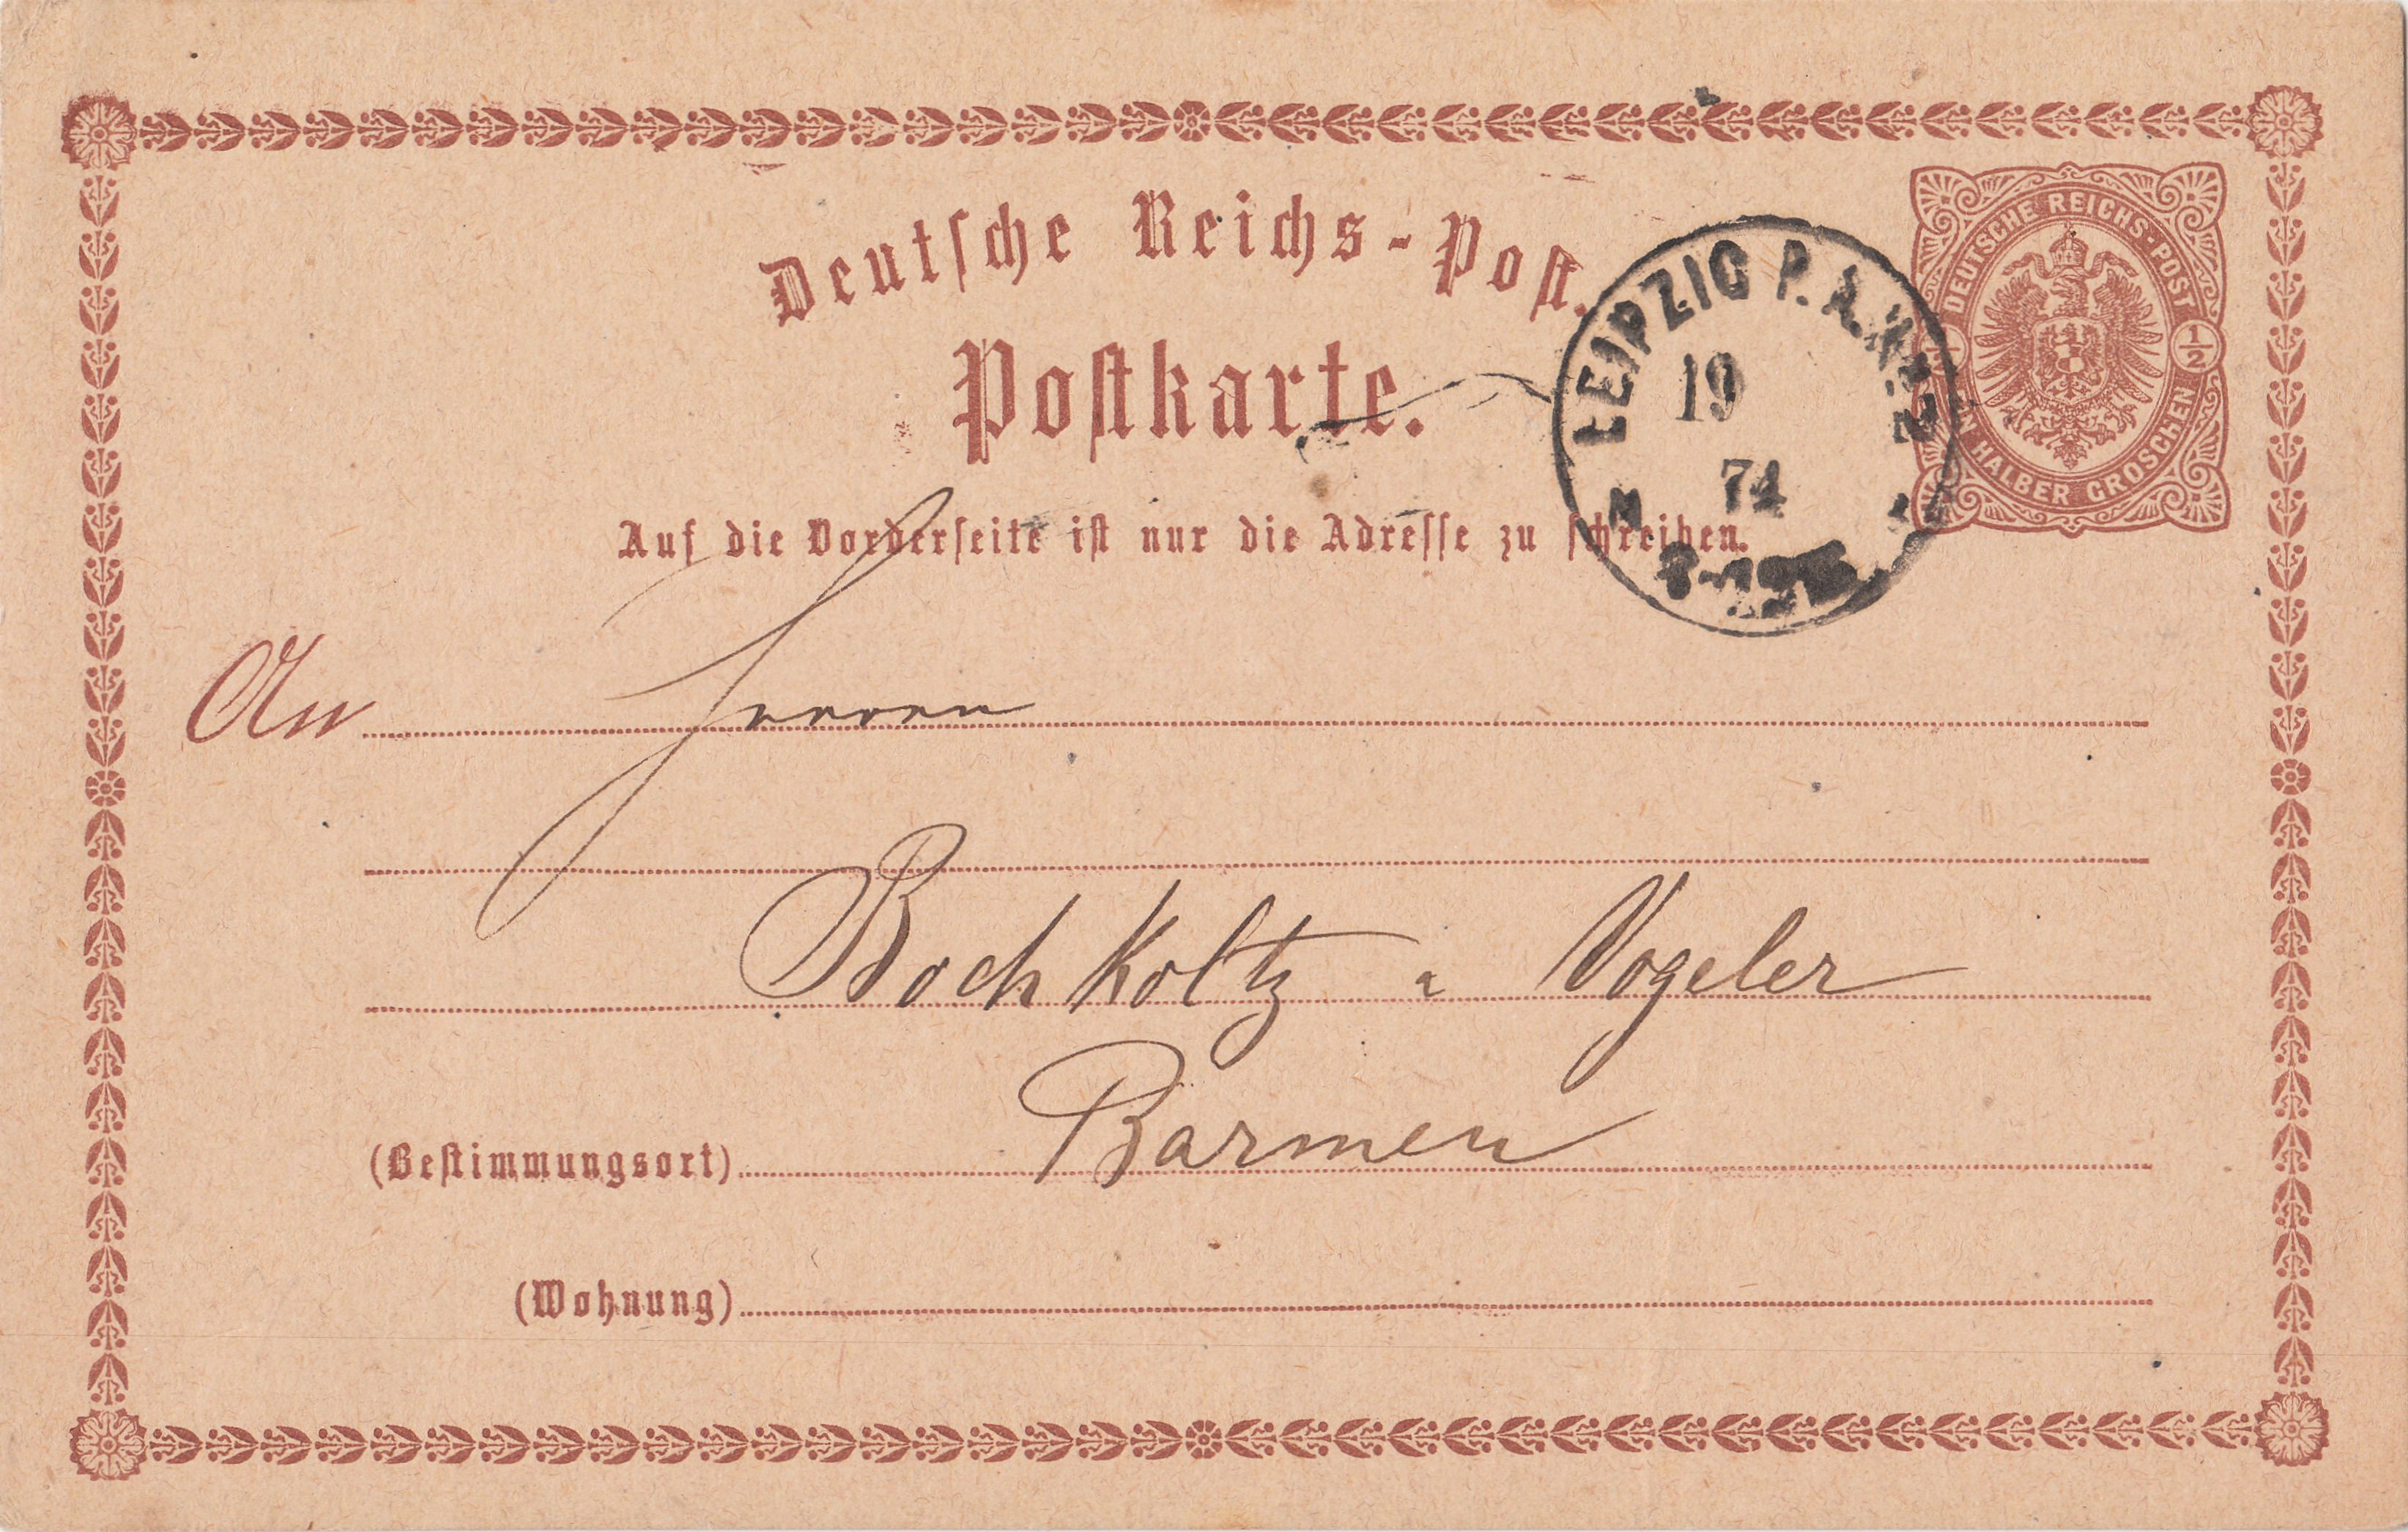 Deutsche Reichs-Post.
Postkarte.
DEUTSCHE REICHS-POST
1/2
EIN HALBER GROSCHEN
LEIPZIG P. A. Nº 2
19
74
Auf die Vorderseite ist nur die Adresse zu schreiben.
An Herren
Bochkoltz & Vogeler
(Bestimmungsort) Barmen
(Wohnung)